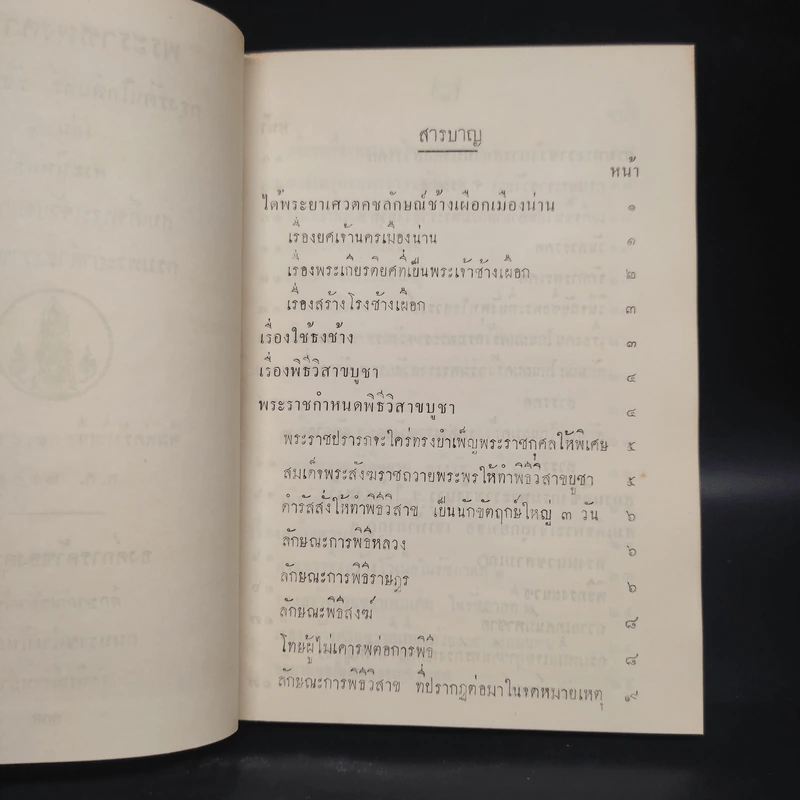 สารบาญ
หน้า
ได้พระยาเศวตคชลักษณ์ช้างเผือกเมืองน่าน ๑
เรื่องยศเจ้านครเมืองน่าน ๑
เรื่องพระเกียรติยศที่เป็นพระเจ้าช้างเผือก ๒
เรื่องสร้างโรงช้างเผือก ๓
เรื่องใช้ธงช้าง ๓
เรื่องพิธีวิสาขบูชา ๔
พระราชกำหนดพิธีวิสาขบูชา ๔
พระราชปรารภจะใคร่ทรงบำเพ็ญพระราชกุศลให้พิเศษ ๕
สมเด็จพระสังฆราชถวายพระพรให้ทำพิธีวิสาขบูชา ๕
ดำรัสสั่งให้ทำพิธีวิสาข เป็นนักขัตฤกษ์ใหญ่ ๓ วัน ๖
ลักษณะการพิธีหลวง ๖
ลักษณะการพิธีราษฎร ๖
ลักษณะพิธีสงฆ์ ๘
โทษผู้ไม่เคารพต่อการพิธี ๘
ลักษณะการพิธีวิสาข ที่ปรากฏต่อมาในจดหมายเหตุ ๙